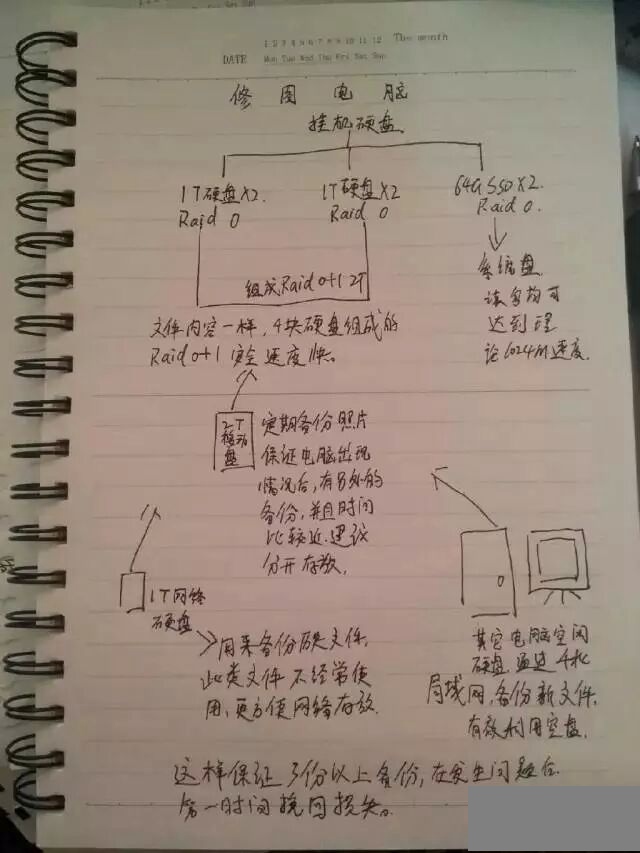 1 2 3 4 5 6 7 8 9 10 11 12 The month
DATE Mon Tue Wed Thu Fri Sat Sun
修图电脑
挂机硬盘
1T硬盘X2.
Raid 0
1T硬盘X2
Raid 0
64G SSD X2.
Raid 0.
组成Raid 0+1 2T
文件内容一样,4块硬盘组成的
Raid 0+1 安全速度快。
系统盘
读写均可
达到理
论1024M速度.
2T
移动
盘
定期备份照片
保证电脑出现
情况后,有另外的
备份,并且时间
比较近.建议
分开存放.
1T网络
硬盘
用来备份历史文件.
此类文件不经常使
用,更方便网络存放.
其它电脑空闲
硬盘通过千兆
局域网,备份新文件,
有效利用空盘.
这样保证3份以上备份,在发生问题后.
第一时间挽回损失。